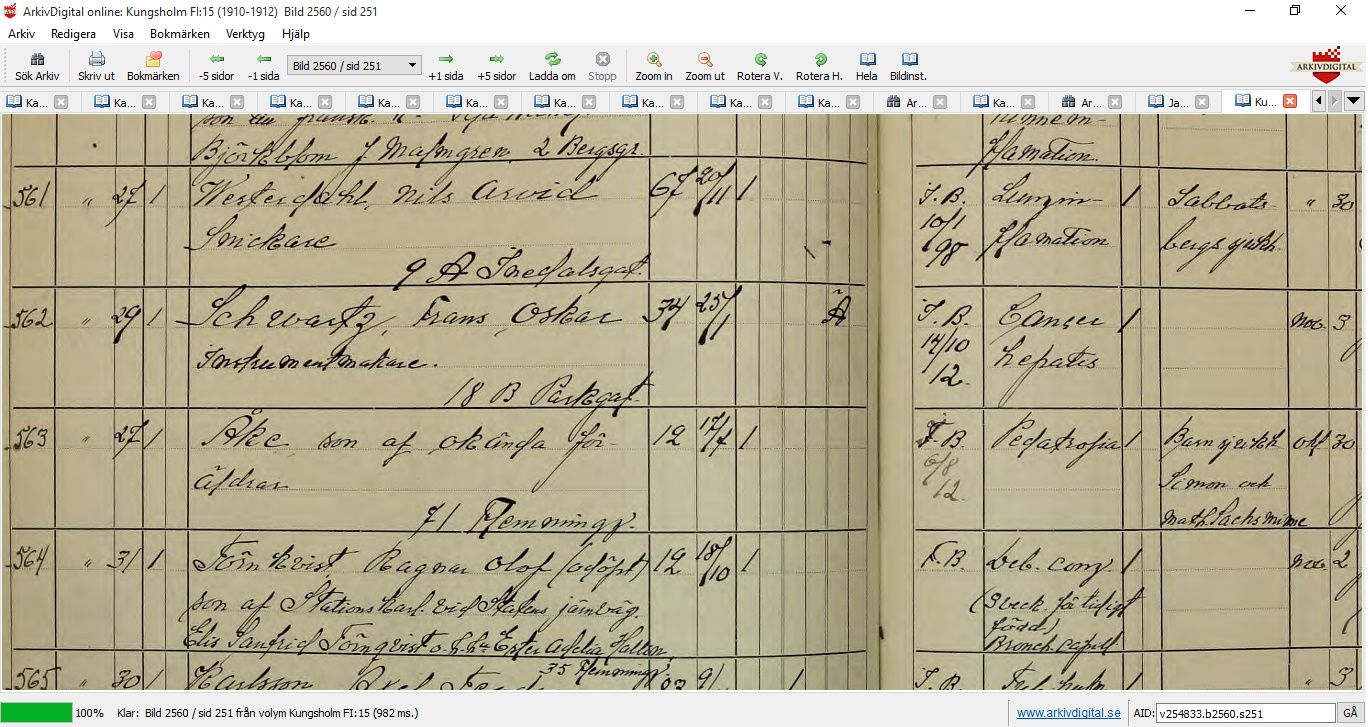 ArkivDigital online: Kungsholm FI:15 (1910-1912) Bild 2560 / sid 251
Arkiv Redigera Visa Bokmärken Verktyg Hjälp
Sök Arkiv Skriv ut Bokmärken -5 sidor -1 sida Bild 2560 / sid 251 +1 sida +5 sidor Ladda om Stopp Zoom in Zoom ut Rotera V. Rotera H. Hela Bildinst. ARKIVDIGITAL
Ka... Ka... Ka... Ka... Ka... Ka... Ka... Ka... Ka... Ka... Ar... Ka... Ar... Ja... Ku...
Björkblom f. Malmgren. 2 Bergsgr. flamation.
561 " 27 1 Westerdahl, Nils Arvid 67 20/11 1 F. B. Lungin- 1 Sabbats- " 30
Snickare 10/1 98 flamation bergs sjukh.
9 A Inedalsgat.
562 " 29 1 Schwartz, Frans Oskar 34 25/1 1 Ä F. B. Cancer 1 nov. 3
Instrumentmakare. 14/10 12. hepatis
18 B Parkgat.
563 " 27 1 Åke son af okända för- 12 17/7 1 F. B. Pedatrofia 1 Barnsjukh. okt 30
äldrar 6/8 12. Simon och
71 Flemmingg. Math. Sachs minne
564 " 31 1 Törnkvist Ragnar Olof (odöpt) 12 18/10 1 F. B. Deb. cong. 1 nov. 2
son af Stationskarl. vid Statens järnväg. (3 veck. för tidigt
Elis Sanfrid Törnqvist o. h. h. Ester Adelia född)
35 Flemmingg. Bronch. capill.
565 " 30 1 Karlsson Axel 9/ 1 F. B. " 3
100% Klar: Bild 2560 / sid 251 från volym Kungsholm FI:15 (982 ms.) www.arkivdigital.se AID: v254833.b2560.s251 GÅ